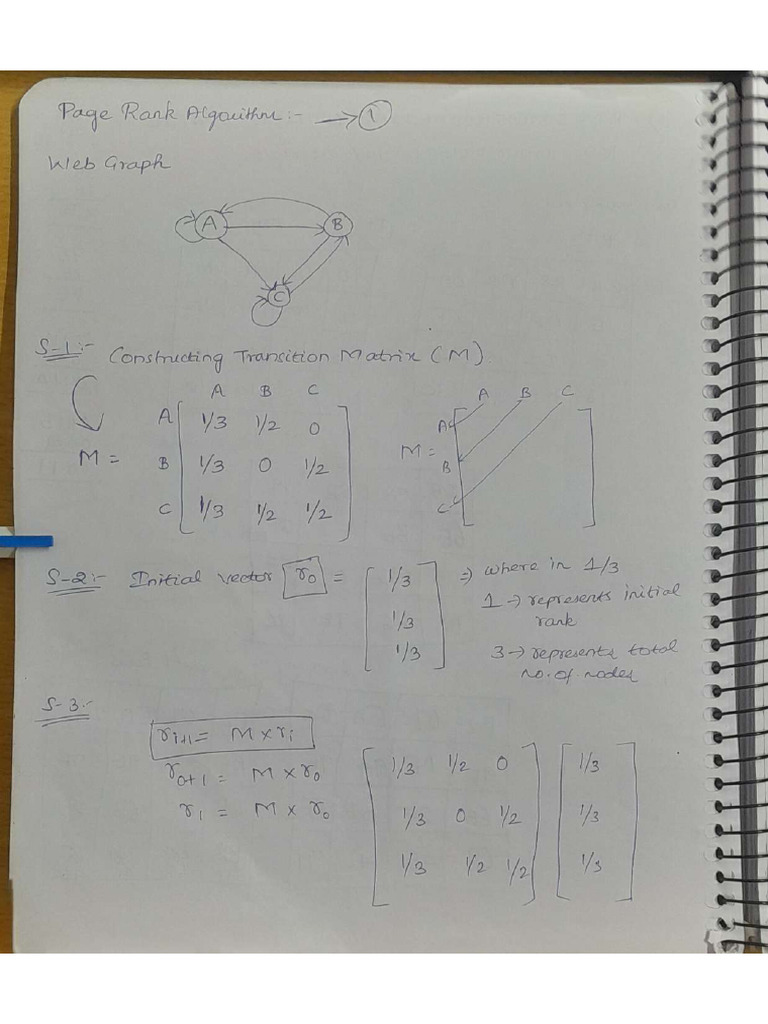 Page Rank Algorithm:- → 1
Web Graph
A B
C
S-1:- Constructing Transition Matrix (M)
A B C
A 1/3 1/2 0
M = B 1/3 0 1/2
C 1/3 1/2 1/2
A B C
A
M =
B
C
S-2:- Initial vector r₀ =
1/3
1/3
1/3
⇒ where in 1/3
1 → represents initial
rank
3 → represents total
no. of nodes
S-3:-
rᵢ₊₁ = M × rᵢ
r₀₊₁ = M × r₀
r₁ = M × r₀
1/3 1/2 0
1/3 0 1/2
1/3 1/2 1/2
1/3
1/3
1/3